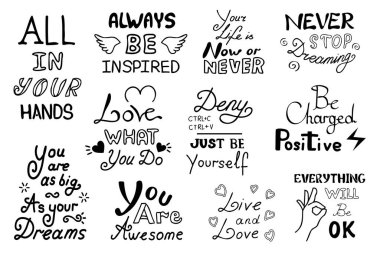 ALL
IN
YOUR
HANDS
ALWAYS
BE
INSPIRED
Your
Life is
Now or
NEVER
NEVER
STOP
Dreaming
Love
WHAT
You Do
Deny
CTRL+C
CTRL+V
JUST BE
Yourself
Be
Charged
Positive
You
are
as big
As your
Dreams
You
Are
Awesome
Live
and
Love
EVERYTHING
WILL
Be
OK